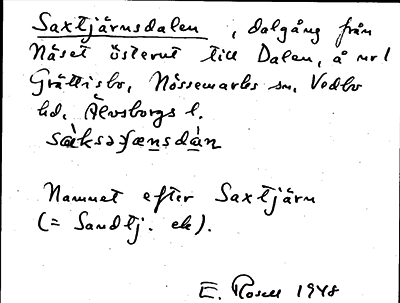 Saxtjärnsdalen, dalgång från
Näset österut till Dalen, å nr 1
Grättisbo, Nössemarks sn, Vedbo
hd, Älvsborgs l.
Namnet efter Saxtjärn
(= Sandtj. ek).
E. Rosell 1948